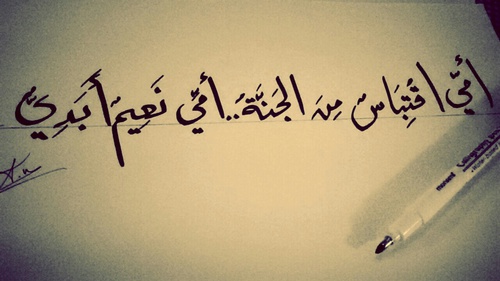 أمّي اقْتِبَاسٌ مِنَ الجَنَّةِ.. أمّي نَعِيمٌ أَبَدِيٌّ